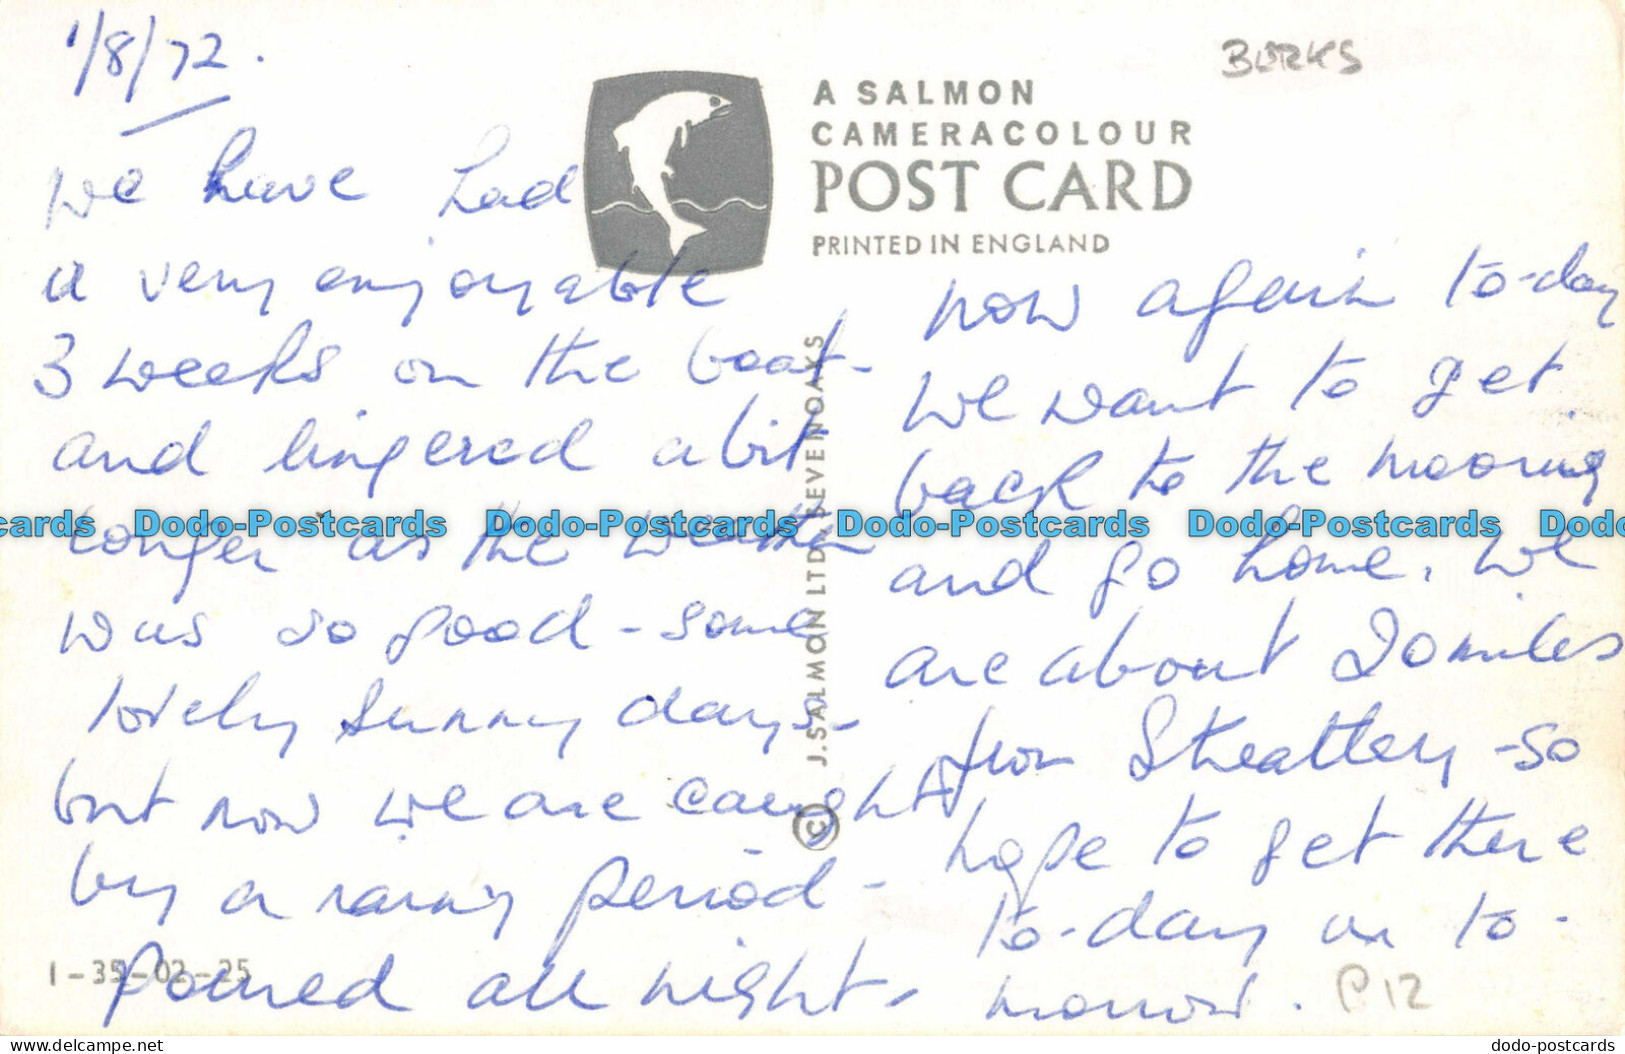 1/8/72.
BURKS
A SALMON
CAMERACOLOUR
POST CARD
PRINTED IN ENGLAND
We have had
a very enjoyable
3 weeks on the boat-
and lingered a bit
longer as the weather
was so good - some
lovely sunny days -
but now we are caught
by a rainy period -
poured all night.
now again to-day
We want to get
back to the mooring
and go home. We
are about 20 miles
from Streatley - so
hope to get there
to-day or to-
morrow.
J. SALMON LTD., SEVENOAKS ©
1-35-02-25
P12
cards Dodo-Postcards Dodo-Postcards Dodo-Postcards Dodo-Postcards Dodo
delcampe.net
dodo-postcards